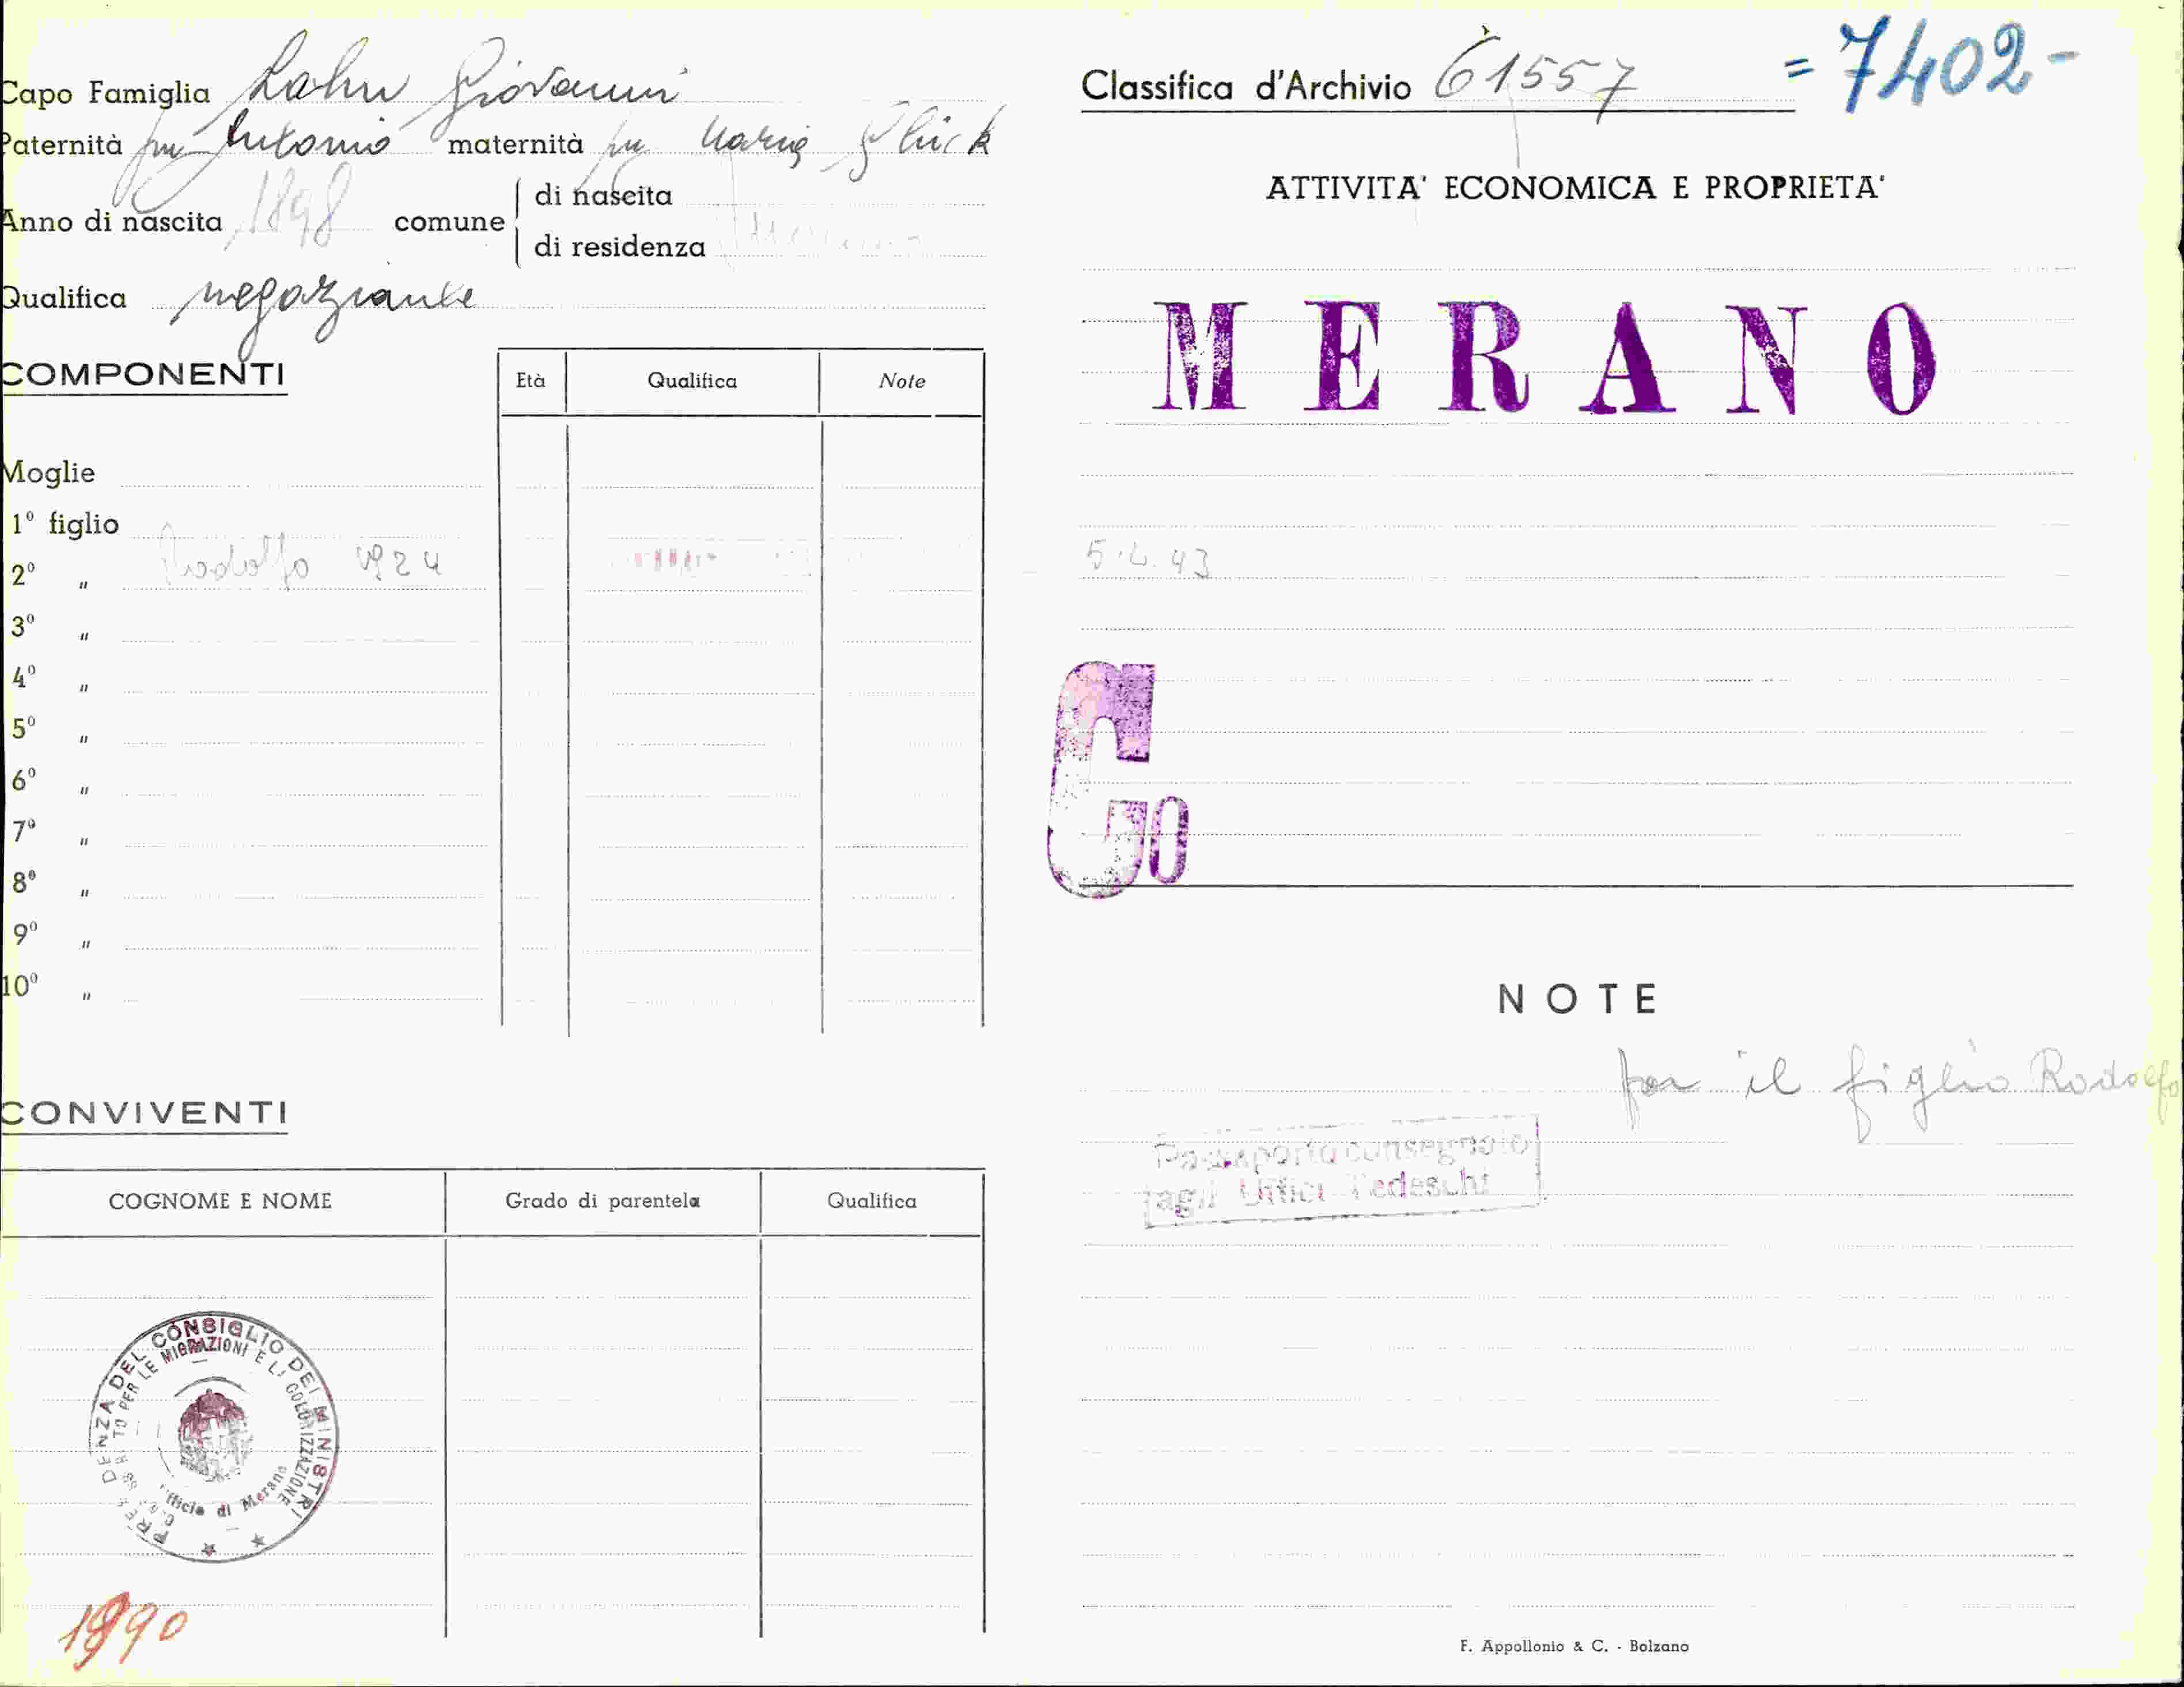 Capo Famiglia Giovanni
Paternità fu Antonio maternità fu Maria
Anno di nascita 1898 comune di nascita
di residenza
Qualifica negoziante
COMPONENTI
Età Qualifica Note
Moglie
1º figlio
2º " Rodolfo 1924
3º "
4º "
5º "
6º "
7º "
8º "
9º "
10º "
CONVIVENTI
COGNOME E NOME Grado di parentela Qualifica
PRESIDENZA DEL CONSIGLIO DEI MINISTRI
PER LE MIGRAZIONI E LA COLONIZZAZIONE
Ufficio di Merano
1890
Classifica d'Archivio 61557 =7402-
ATTIVITA' ECONOMICA E PROPRIETA'
MERANO
5.4.43
Go
NOTE
per il figlio Rodolfo
Passaporto consegnato
agli Uffici Tedeschi
F. Appollonio & C. - Bolzano